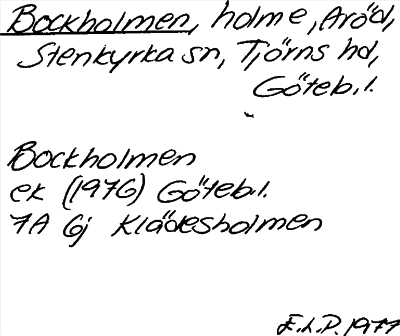 Bockholmen, holme, Aröd,
Stenkyrka sn, Tjörns hd,
Göteb.l.
Bockholmen
ek (1976) Göteb.l.
7A 6j Klädesholmen
E.L.P. 1977